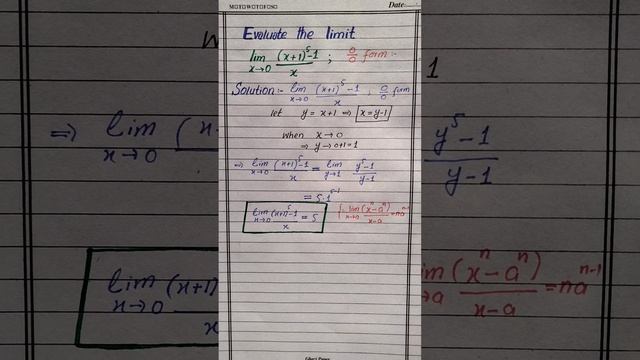 MOTOWOTOFOSO Date
Evaluate the limit
lim x→0 (x+1)^5-1 / x ; 0/0 form :-
Solution:- lim x→0 (x+1)^5-1 / x , 0/0 form
let y = x+1 ⇒ x=y-1
when x→0
⇒ y→0+1=1
⇒ lim x→0 (x+1)^5-1 / x = lim y→1 y^5-1 / y-1
= 5·1^5-1
lim x→0 (x+1)^5-1 / x = 5
lim (x^n-a^n) / x-a = na^n-1
1
⇒ lim x→0 (x
y^5-1 / y-1
lim x→0 (x+1) / x
im →a (x^n-a^n) / x-a = na^n-1